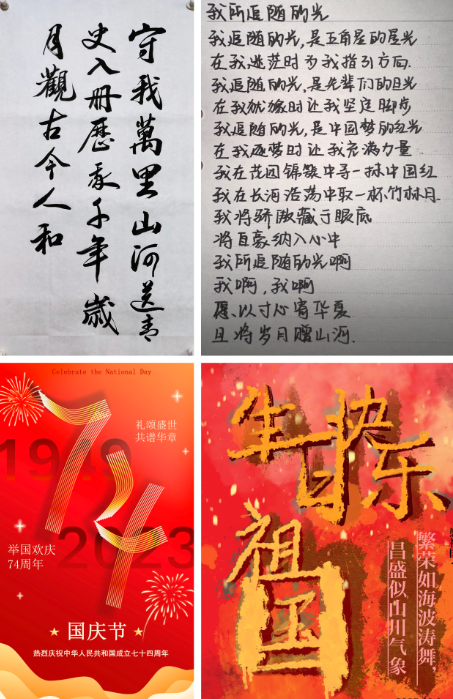 守我萬里山河送青
史入冊歷千年歲
月觀古今人和
我所追随的光
我追随的光,是五角星的星光
在我迷茫时为我指引方向.
我追随的光,是先辈们的目光
在我犹豫时让我坚定脚步
我追随的光,是中国梦的光
在我逐梦时让我充满力量
我在花团锦簇中寻一抹中国红
我在长河浩荡中取一杯竹林月.
我将骄傲藏于眼底
将自豪纳入心中
我所追随的光啊
我啊,我啊
愿,以寸心寄华夏
且将岁月赠山河.
Celebrate the National Day
礼颂盛世
共谱华章
74
1949
2023
举国欢庆
74周年
国庆节
热烈庆祝中华人民共和国成立七十四周年
生日快乐
祖国
繁荣如海波涛舞
昌盛似山川气象